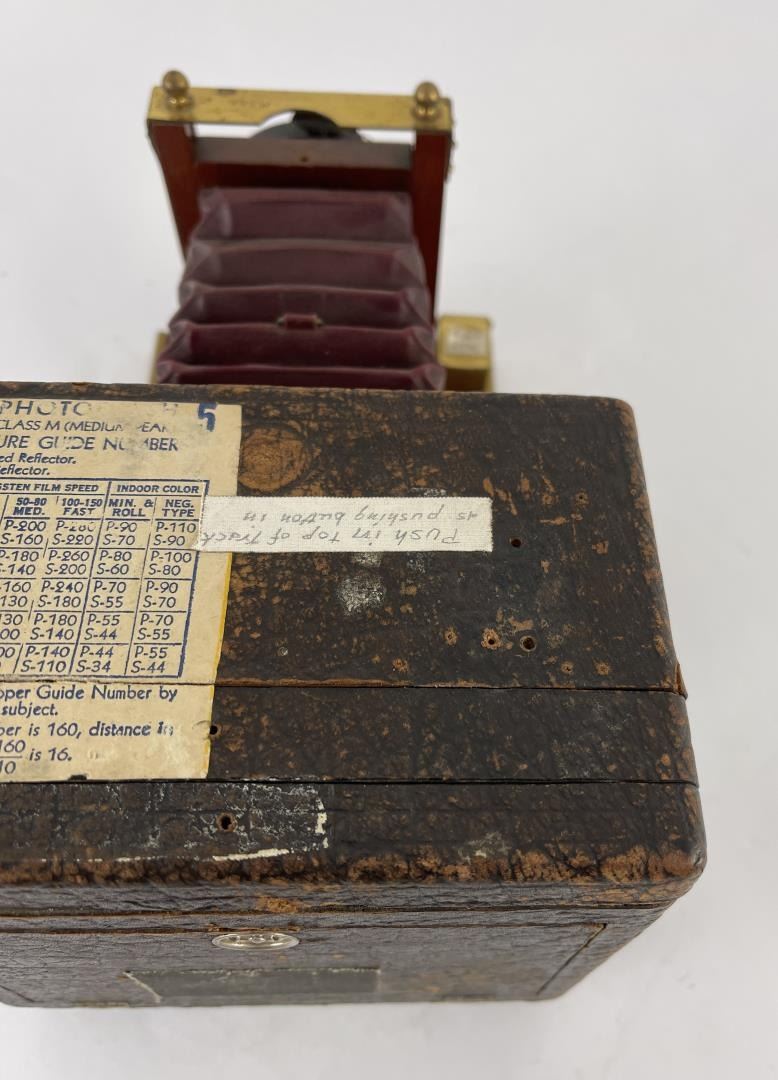 PHOTO 5
CLASS M (MEDIUM PEAK
URE GUIDE NUMBER
ed Reflector.
eflector.
STEN FILM SPEED INDOOR COLOR
50-80 100-150 MIN. & NEG.
MED. FAST ROLL TYPE
P-200 P-280 P-90 P-110
S-160 S-220 S-70 S-90
P-180 P-260 P-80 P-100
S-140 S-200 S-60 S-80
160 P-240 P-70 P-90
130 S-180 S-55 S-70
130 P-180 P-55 P-70
00 S-140 S-44 S-55
00 P-140 P-44 P-55
S-110 S-34 S-44
oper Guide Number by
subject.
ber is 160, distance in
160
10 is 16.
Push in top of track
as pushing button in